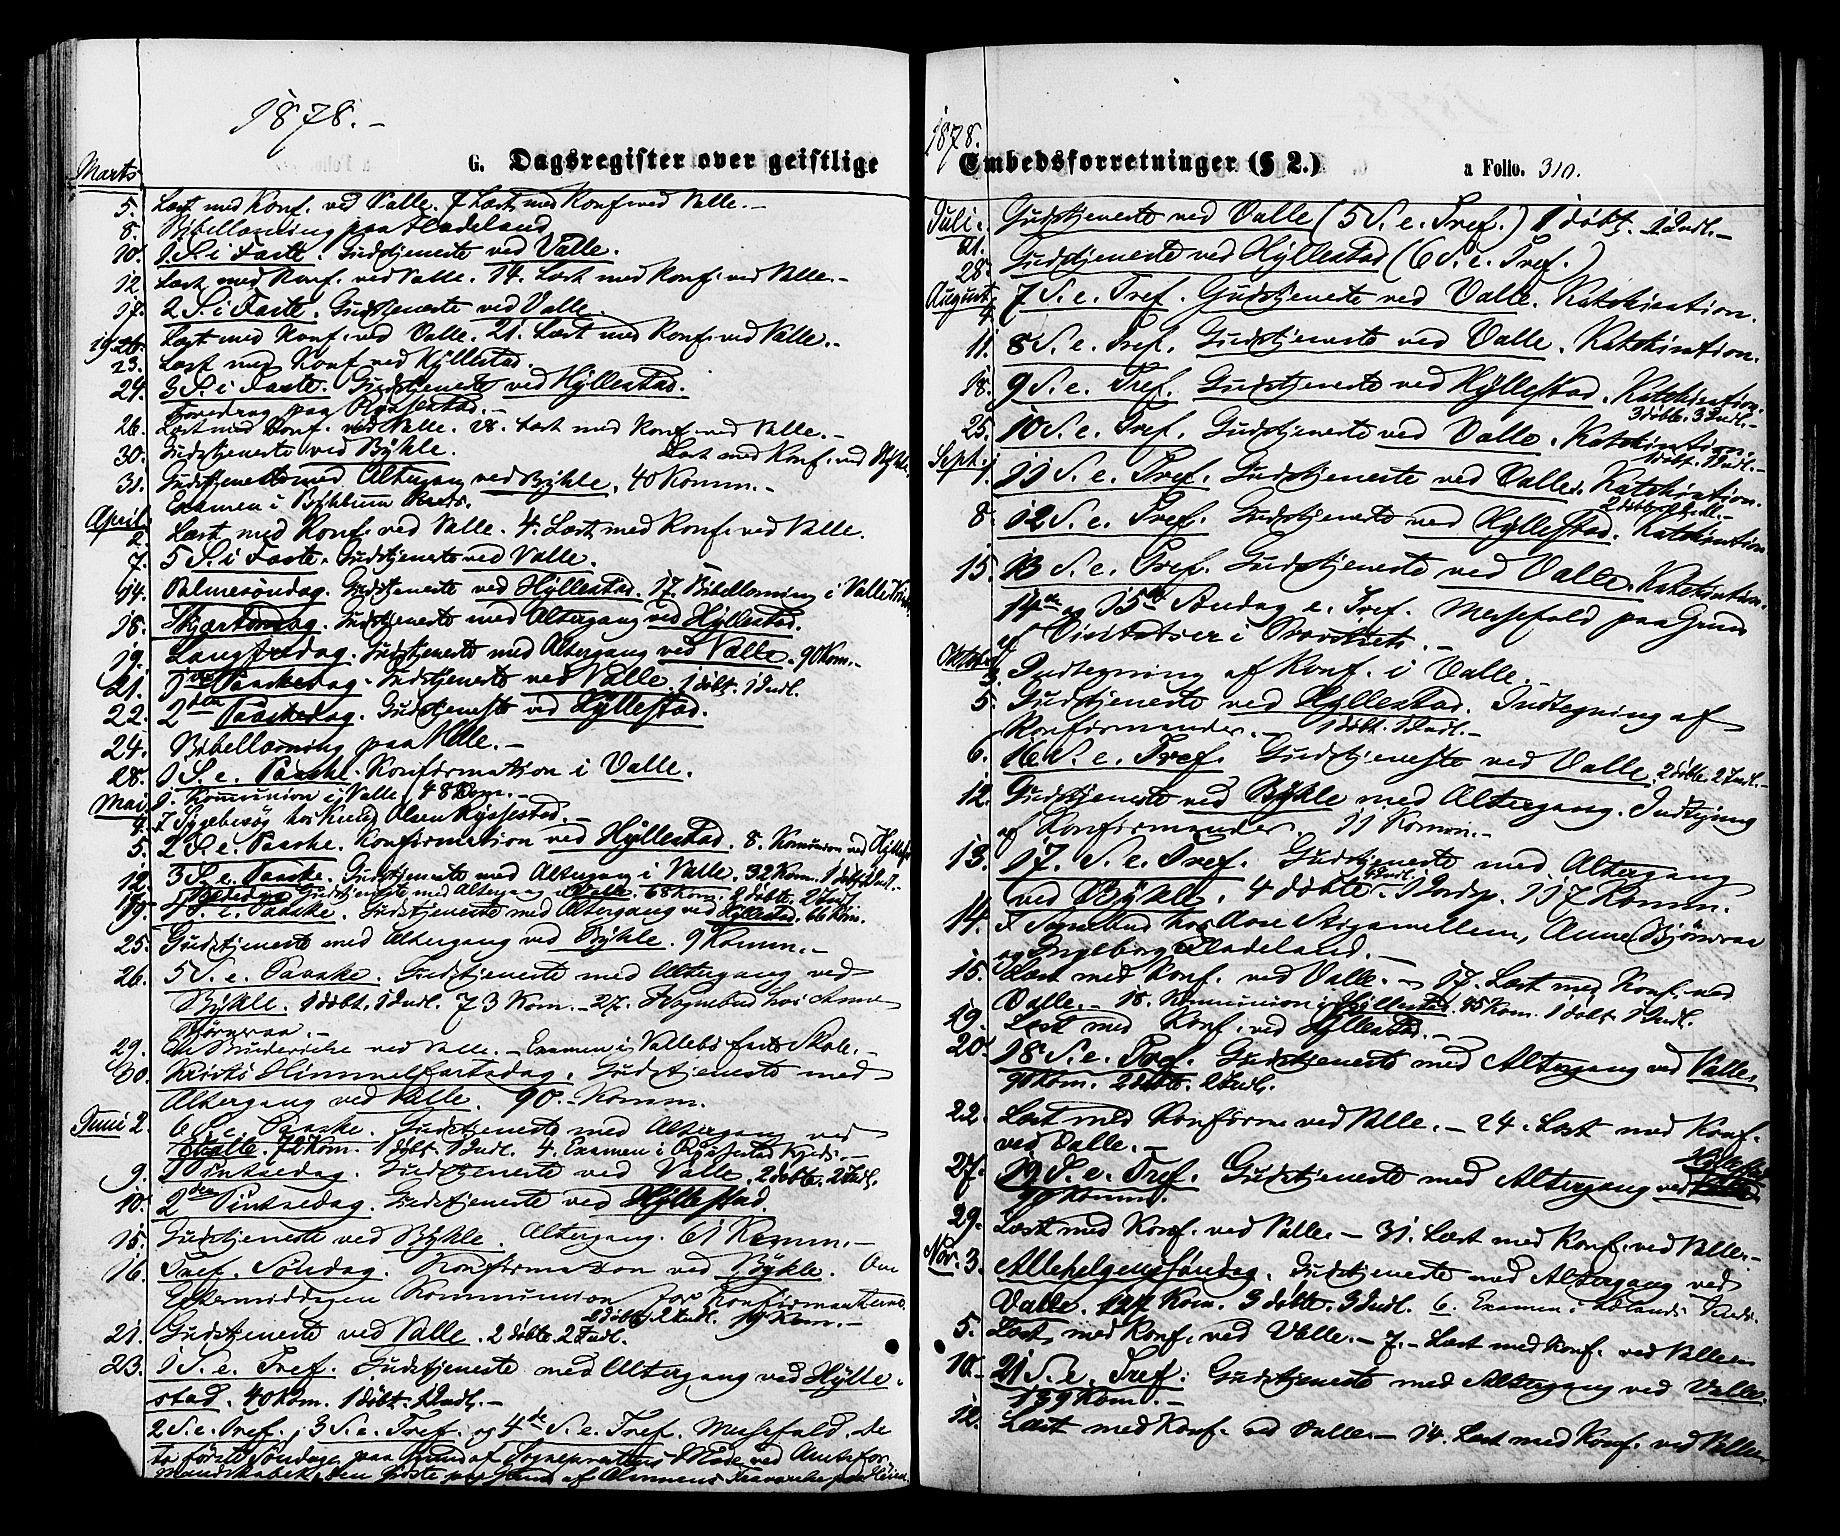 1878.-
G. Dagsregister over geistlige
Marts
5. Læst med Konf. ved Valle. 7 Læst med Konf ved Valle.-
8. Bibellæsning paa Fladeland
10. 1 S. i Faste. Gudstjeneste ved Valle.
12. Læst med Konf. ved Valle. 14. Læst med Konf. ved Valle.-
17. 2 S. i Faste. Gudstjeneste ved Valle.
19. Læst med Konf. ved Valle. 21. Læst med Konf. ved Valle.-
23. Læst med Konf ved Hyllestad.
24. 3 S. i Faste. Gudstjeneste ved Hyllestad.
Foredrag paa Rysestad.-
26. Læst med Konf. ved Valle. 28. Læst med Konf. ved Valle.-
30. Gudstjeneste ved Bykle. Læst med Konf. ved Bykle
31. Gudstjeneste med Altergang ved Bykle. 40 Komm.-
Examen i Kreds.
April
2. Læst med Konf. ved Valle. 4. Læst med Konf. ved Valle.
7. 5 S. i Faste. Gudstjeneste ved Valle.
14. Palmesøndag. Gudstjeneste ved Hyllestad. 17. Bibellæsning i Valle
18. Skjærtorsdag. Gudstjeneste med Altergang ved Hyllestad.
19. Langfredag. Gudstjeneste med Altergang ved Valle. 90 Kom.-
21. 1ste Paaskedag. Gudstjeneste ved Valle. 1 døbt. 1 Indl.
22. 2den Paaskedag. Gudstjeneste ved Hyllestad.
24. Bibellæsning paa.-
28. 1 S. e. Paaske. Konfirmation i Valle.
Mai 1. Kommunion i Valle 48 Kom.-
4. I Sygebesøg hos Knud Olsen Rysestad.-
5. 2 S. e. Paaske. Konfirmation ved Hyllestad. 8. Komunion ved
12. 3 S. e. Paaske. Gudstjeneste med Altergang i Valle. 32 Kom. 1 døbt 1 Indl.-
Bededag Gudstjeneste med Altergang i Valle. 68 Kom. 2 døbte. 2 Indl.
19. 4 S. e. Paaske. Gudstjeneste med Altergang ved Hyllestad. 66 Kom.
25. Gudstjeneste med Altergang ved Bykle. 9 Komm.-
26. 5 S. e. Paaske. Gudstjeneste med Altergang ved
Bykle. 1 døbt. 1 Indl. 73 Kom.- 27. I Sognebud hos Anne
Bjørnraa.-
29. ved Valle.- Examen i Vallebø faste Skole.-
30. Kristi Himmelfartsdag. Gudstjeneste med
Altergang ved Valle. 90.- Komm.
Juni 2. 6 S. e. Paaske. Gudstjeneste med Altergang ved
Valle. 72 Kom. 1 døbt. 1 Indl. 4. Examen i Rysestad Kreds.-
9. 1 Pintsedag. Gudstjeneste ved Valle. 2 døbte. 2 Indl.
10. 2den Pintsedag. Gudstjeneste ved Hyllestad.
15. Gudstjeneste ved Bykle. Altergang. 61 Komm.-
16. Tref. Søndag. Konfirmation ved Bykle. Om
Eftermiddagen Kommunion for Konfirmanterne.
2 døbte. 2 Indl. Kom.-
21. Gudstjeneste ved Valle. 2 døbte. 2 Indl.
23. 1 S. e. Tref. Gudstjeneste med Altergang ved Hylle-
stad. 40 Kom. 1 døbt. 1 Indl.-
2 S. e. Tref., 3 S. e. Tref. og 4de S. e. Tref. Messefald. De
to første Søndage paa Grund af Sogneprestens Møde ved Amtsfor-
mandskabet, den sidste paa Grund af Almuens Fraværelse paa
1878.
Embedsforretninger (§ 2.) a Folio. 310.
Juli.
21. Gudstjeneste ved Valle (5 S. e. Tref.) 1 døbt. 1 Indl.-
28. Gudstjeneste ved Hyllestad (6 S. e. Tref.)
August
4. 7 S. e. Tref. Gudstjeneste ved Valle. Katekisation.
11. 8 S. e. Tref. Gudstjeneste ved Valle. Katekisation.
18. 9 S. e. Tref. Gudstjeneste ved Hyllestad. Katekisation.
3 døbte. 3 Indl.-
25. 10 S. e. Tref. Gudstjeneste ved Valle. Katekisation.
1 døbt. 1 Indl.-
Sept. 1. 11 S. e. Tref. Gudstjeneste ved Valle. Katekisation.
2 døbte 2 Indl.-
8. 12 S. e. Tref. Gudstjeneste ved Hyllestad. Katekisation
15. 13 S. e. Tref. Gudstjeneste ved Valle. Katekisation.
14de og 15de Søndag e. Tref. Messefald paa Grund
af Visitatser i Provstiet.-
Oktober
3. Indtegning af Konf. i Valle.-
5. Gudstjeneste ved Hyllestad. Indtegning af
Konfirmander.- 1 døbt. 1 Indl.-
6. 16 S. e. Tref. Gudstjeneste ved Valle. 2 døbte. 2 Indl.-
12. Gudstjeneste ved Bykle med Altergang. Indtegning
af Konfirmander. 11 Komm.-
13. 17. S. e. Tref. Gudstjeneste med Altergang
ved Bykle. 4 døbte. 4 Indl. 1 Indp. 117 Komm.
14. I Sognebud hos Aase Stigamellem, Anne Bjørnraa
og Ingeborg Fladeland.-
15. Læst med Konf. ved Valle.- 17. Læst med Konf. ved
Valle.- 18. Kommunion i Hyllestad. 45 Kom. 1 døbt 1 Indl.
19. Læst med Konf. ved Hyllestad.-
20. 18 S. e. Tref. Gudstjeneste med Altergang ved Valle.
90 Kom. 2 døbte. 2 Indl.
22. Læst med Konfirm ved Valle.- 24. Læst med Konf.
ved Valle.-
27. 19 S. e. Tref. Gudstjeneste med Altergang ved Hyllestad
Komm.
29. Læst med Konf. ved Valle.- 31. Læst med Konf. ved Valle.-
Nov. 3. Allehelgenssøndag. Gudstjeneste med Altergang ved
Valle. 127 Kom. 3 døbte. 3 Indl. 6. Examen i Kreds.
5. Læst med Konf. ved Valle.- 7.- Læst med Konf. ved Valle.-
10. 21 S. e. Tref. Gudstjeneste med Altergang ved Valle.
139 Kom.-
12. Læst med Konf. ved Valle.- 14. Læst med Konf. ved Valle.-